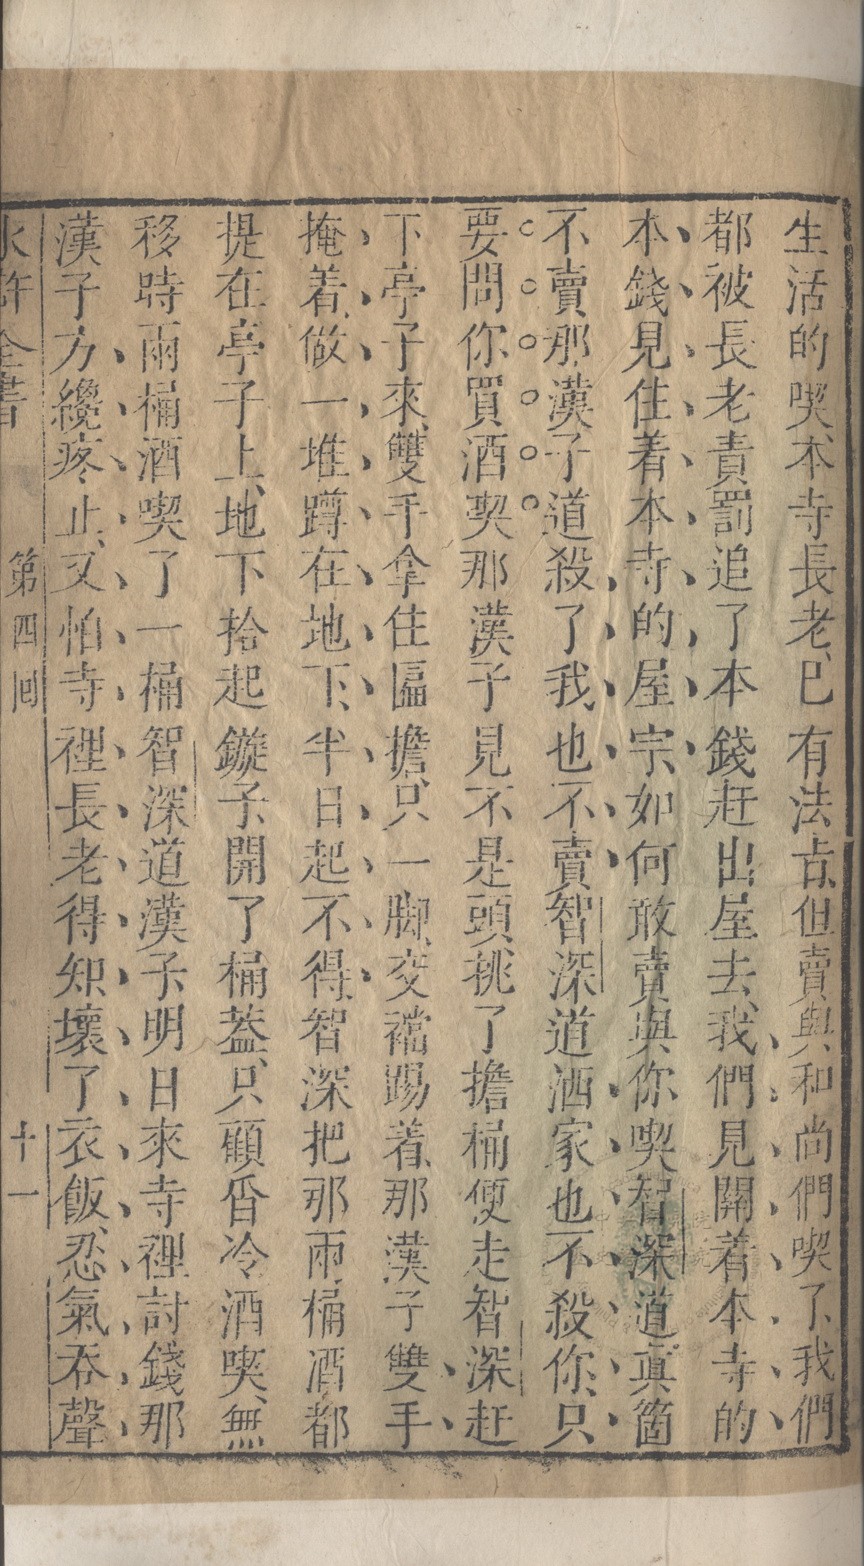 生活的喫、本寺長老、已有法旨、但賣與和尚們喫了、我們
都被長老責罰追了本錢赶出屋去、我們見關着本寺的
本錢見住着本寺的屋宗、如何敢賣與你喫智深道真箇
不賣那漢子道殺了我也不賣智深道洒家也不殺你、只
要問你買酒喫那漢子見不是頭、挑了擔桶便走智深赶
下亭子來、雙手拿住匾擔、只一脚、交襠踢着、那漢子雙手
掩着、做一堆蹲在地下、半日起不得、智深把那兩桶酒都
提在亭子上、地下拾起鏇子、開了桶蓋、只顧舀冷酒喫、無
移時兩桶酒喫了一桶智深道漢子、明日來寺裡討錢那
漢子方纔疼止、又怕寺裡長老得知、壞了衣飯、忍氣吞聲
水滸全書　第四回　十一